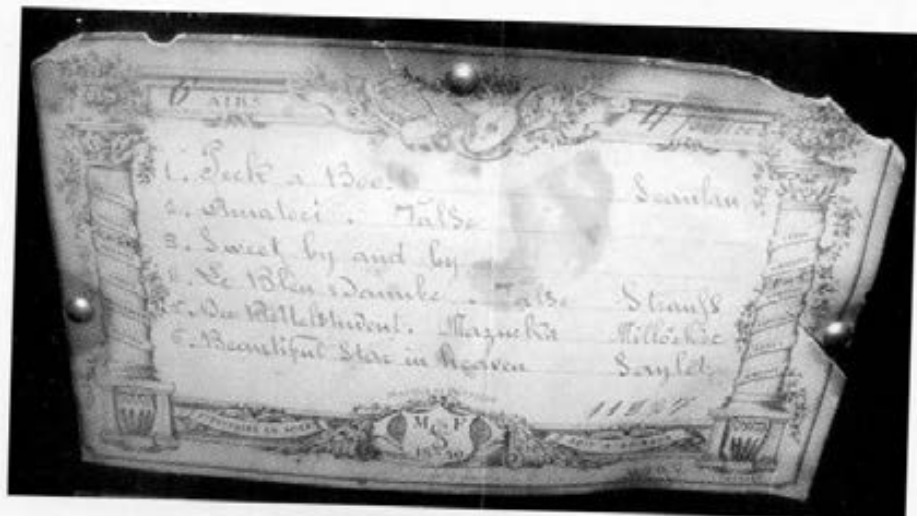 6 AIRS
1. Peek a Boo. Scanlan
2. Amatoci. Valse
3. Sweet by and by
4. Le Bleu Danube. Valse Strauss
5. Der Bettelstudent. Mazurka Millöcker
6. Beautiful Star in Heaven Saylet
11227
M S F